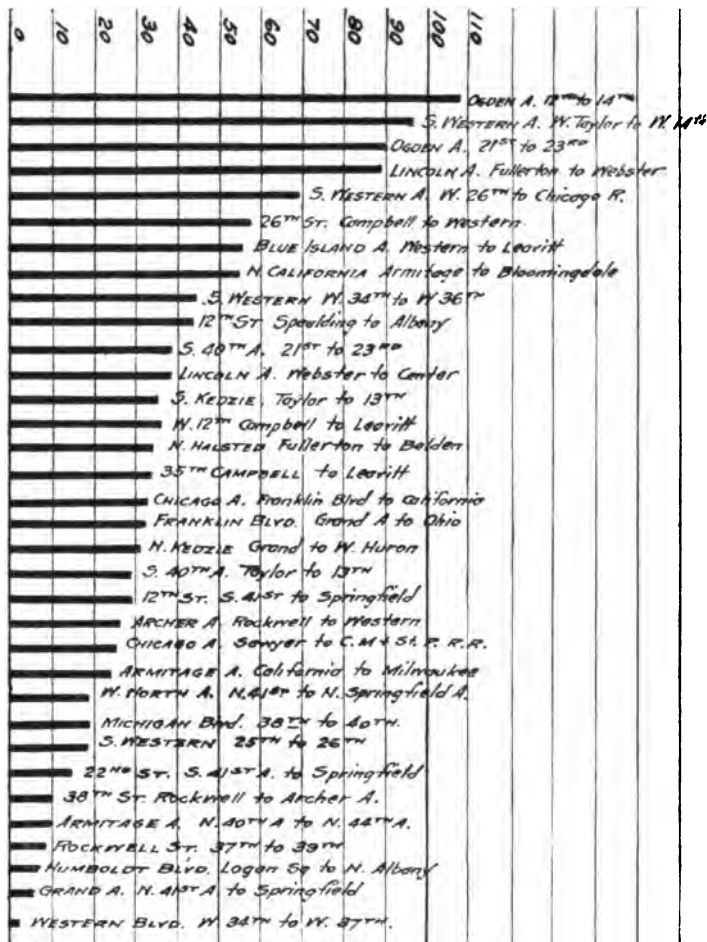 0 10 20 30 40 50 60 70 80 90 100 110
OGDEN A. 12TH to 14TH
S. WESTERN A. W. Taylor to W. 14th
OGDEN A. 21ST to 23RD
LINCOLN A. Fullerton to Webster
S. WESTERN A. W. 26TH to Chicago R.
26TH ST. Campbell to Western
BLUE ISLAND A. Western to Leavitt
N. CALIFORNIA Armitage to Bloomingdale
S. WESTERN W. 34TH to W 36TH
12TH ST Spaulding to Albany
S. 40TH A. 21ST to 23RD
LINCOLN A. Webster to Center
S. KEDZIE, Taylor to 13TH
W. 12TH Campbell to Leavitt
N. HALSTED Fullerton to Belden
35TH CAMPBELL to Leavitt
CHICAGO A. Franklin Blvd to California
FRANKLIN BLVD. Grand A to Ohio
N. KEDZIE Grand to W. Huron
S. 40TH A. Taylor to 13TH
12TH ST. S. 41ST to Springfield
ARCHER A. Rockwell to Western
CHICAGO A. Sawyer to C. M & St. P. R.R.
ARMITAGE A. California to Milwaukee
W. NORTH A. N. 41ST to N. Springfield A.
MICHIGAN Blvd. 38TH to 40TH.
S. WESTERN 25TH to 26TH
22ND ST. S. 41ST A. to Springfield
38TH ST. Rockwell to Archer A.
ARMITAGE A. N. 40TH A to N. 44TH A.
ROCKWELL ST. 37TH to 39TH
HUMBOLDT BLVD. Logan Sq to N. Albany
GRAND A. N. 41ST A to Springfield
WESTERN BLVD. W 34TH to W. 37TH.